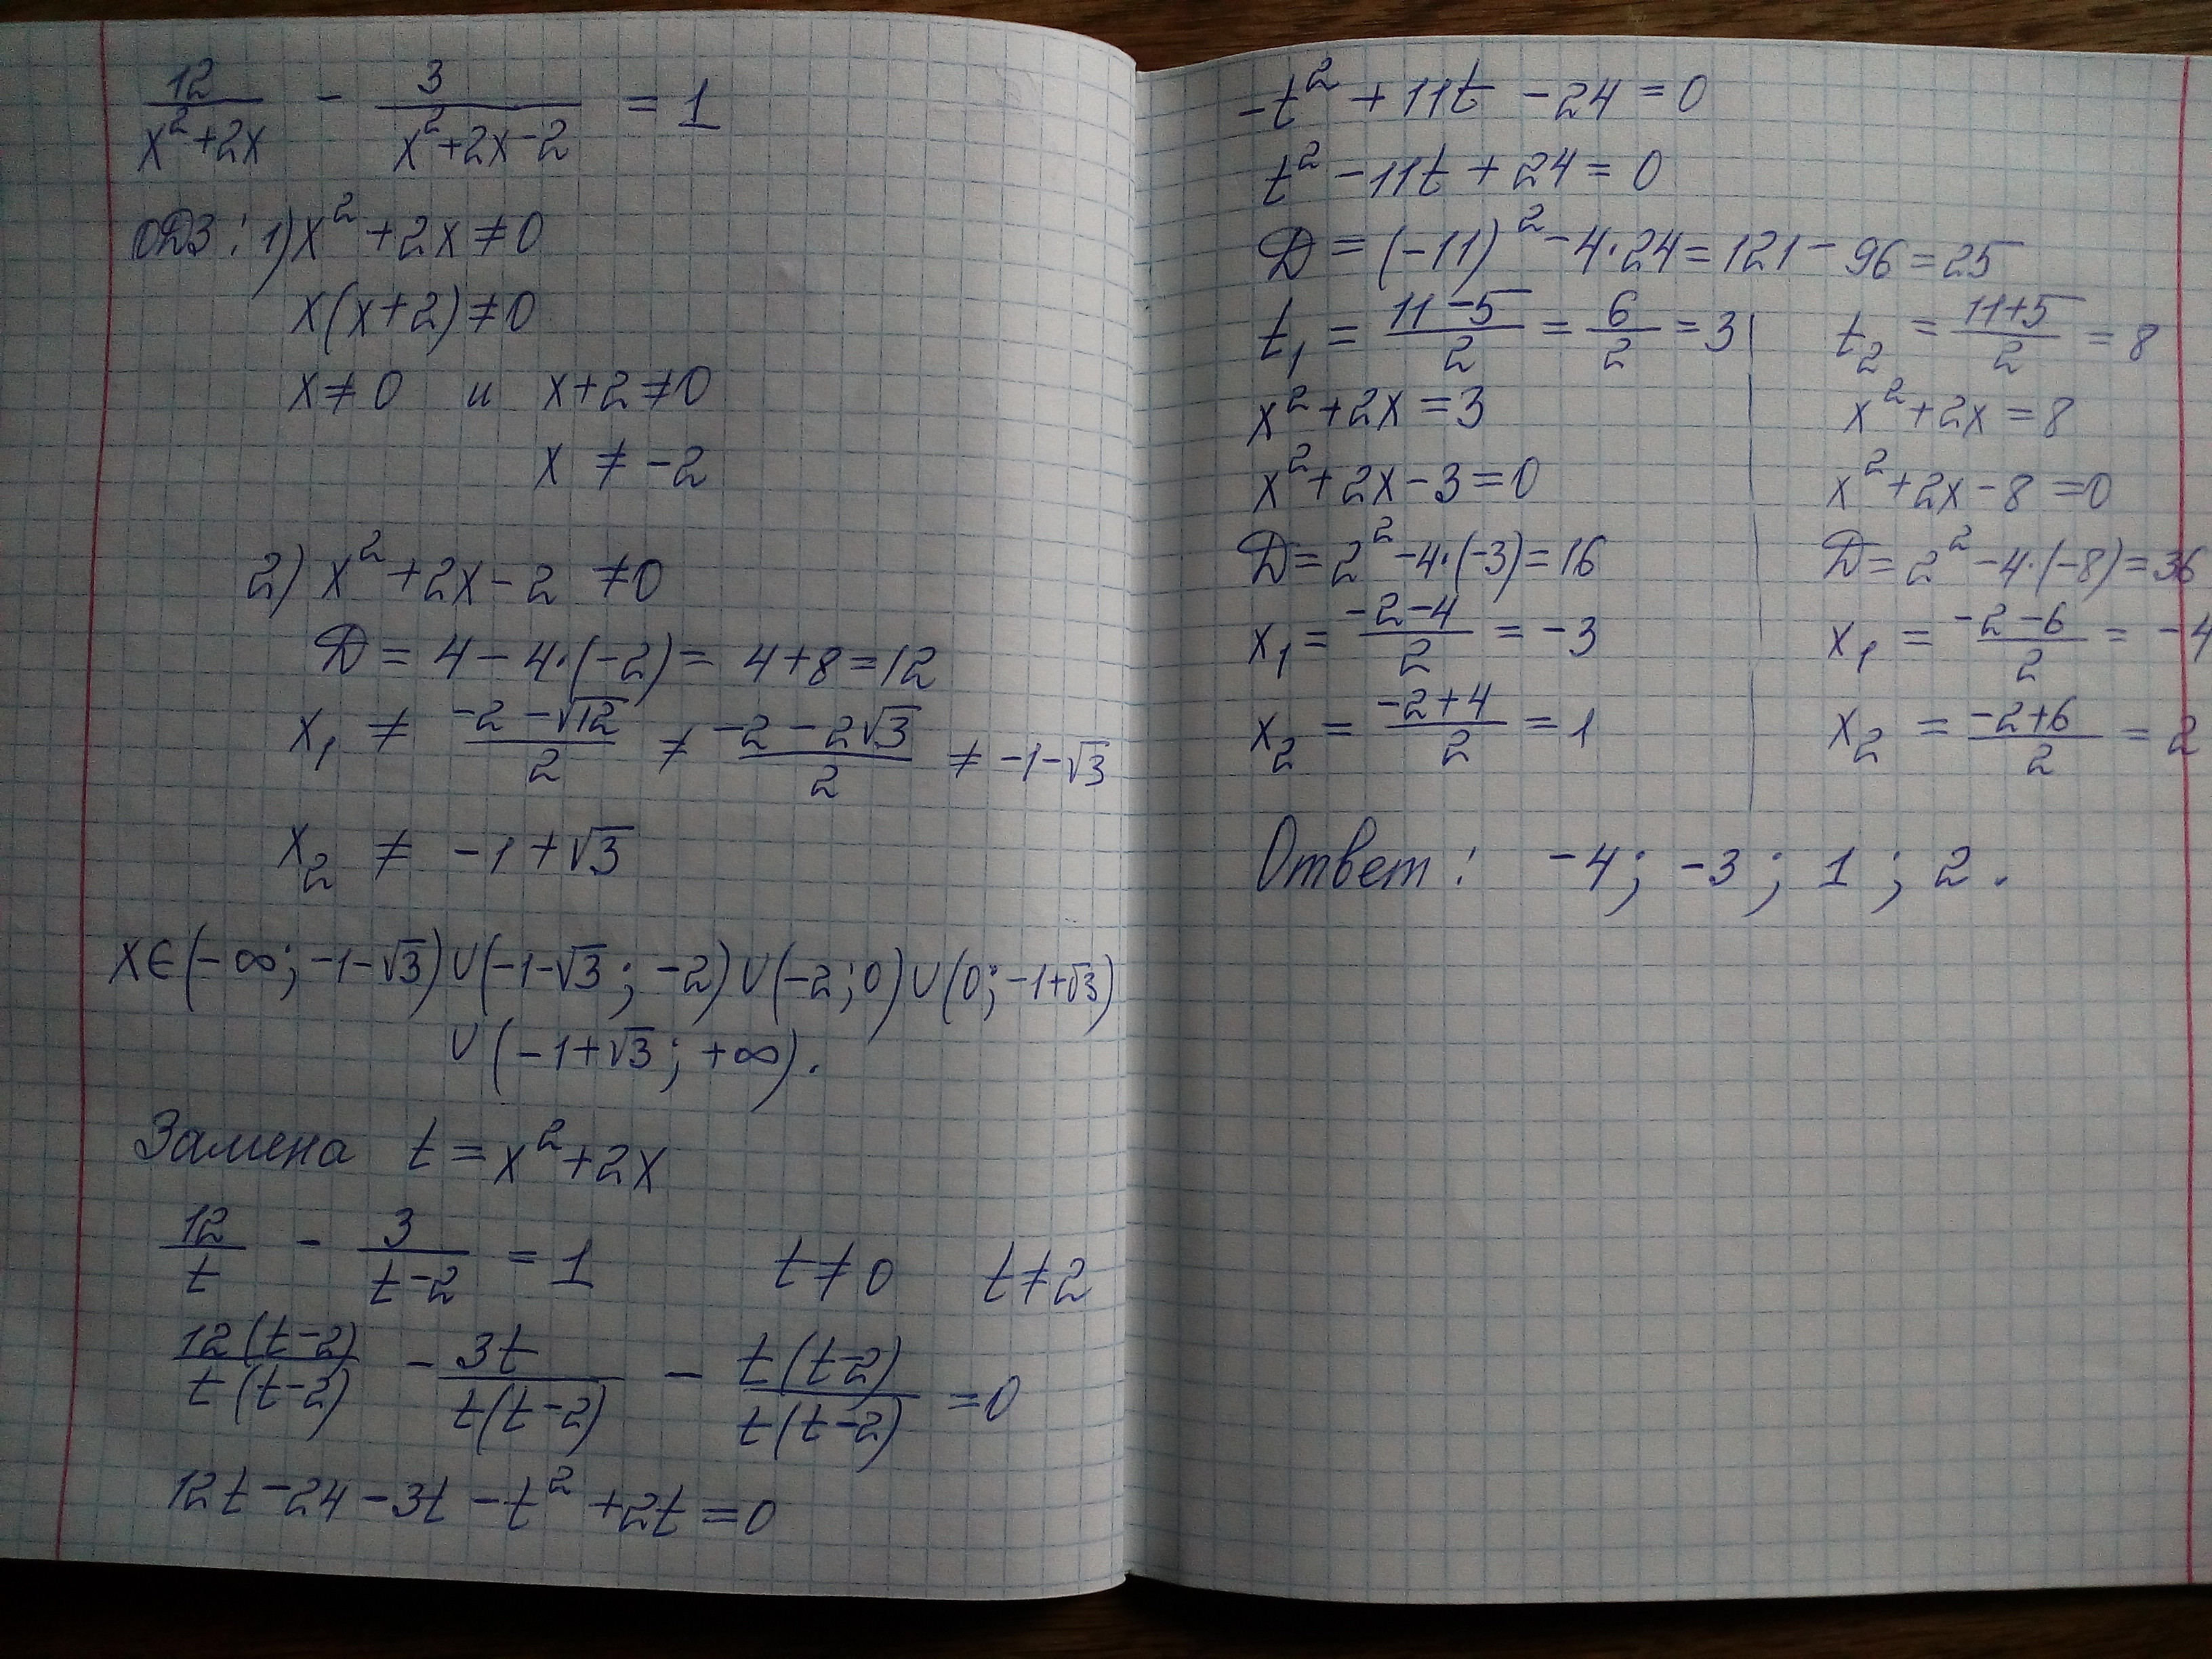 12/(x²+2x) - 3/(x²+2x-2) = 1
ОДЗ: 1) x²+2x≠0
x(x+2)≠0
x≠0 и x+2≠0
x ≠ -2
2) x²+2x-2 ≠0
D = 4-4·(-2) = 4+8=12
x₁ ≠ (-2-√12)/2 ≠ (-2-2√3)/2 ≠ -1-√3
x₂ ≠ -1+√3
x∈(-∞; -1-√3)∪(-1-√3; -2)∪(-2;0)∪(0;-1+√3)
∪(-1+√3; +∞).
Замена t=x²+2x
12/t - 3/(t-2) = 1 t≠0 t≠2
12(t-2)/t(t-2) - 3t/t(t-2) - t(t-2)/t(t-2) =0
12t-24-3t-t²+2t=0
-t²+11t-24=0
t²-11t+24=0
D=(-11)²-4·24=121-96=25
t₁ = (11-5)/2 = 6/2 = 3 t₂ = (11+5)/2 = 8
x²+2x=3 x²+2x=8
x²+2x-3=0 x²+2x-8=0
D=2²-4·(-3)=16 D=2²-4·(-8)=36
x₁ = (-2-4)/2 = -3 x₁ = (-2-6)/2 = -4
x₂ = (-2+4)/2 = 1 x₂ = (-2+6)/2 = 2
Ответ: -4; -3; 1; 2.